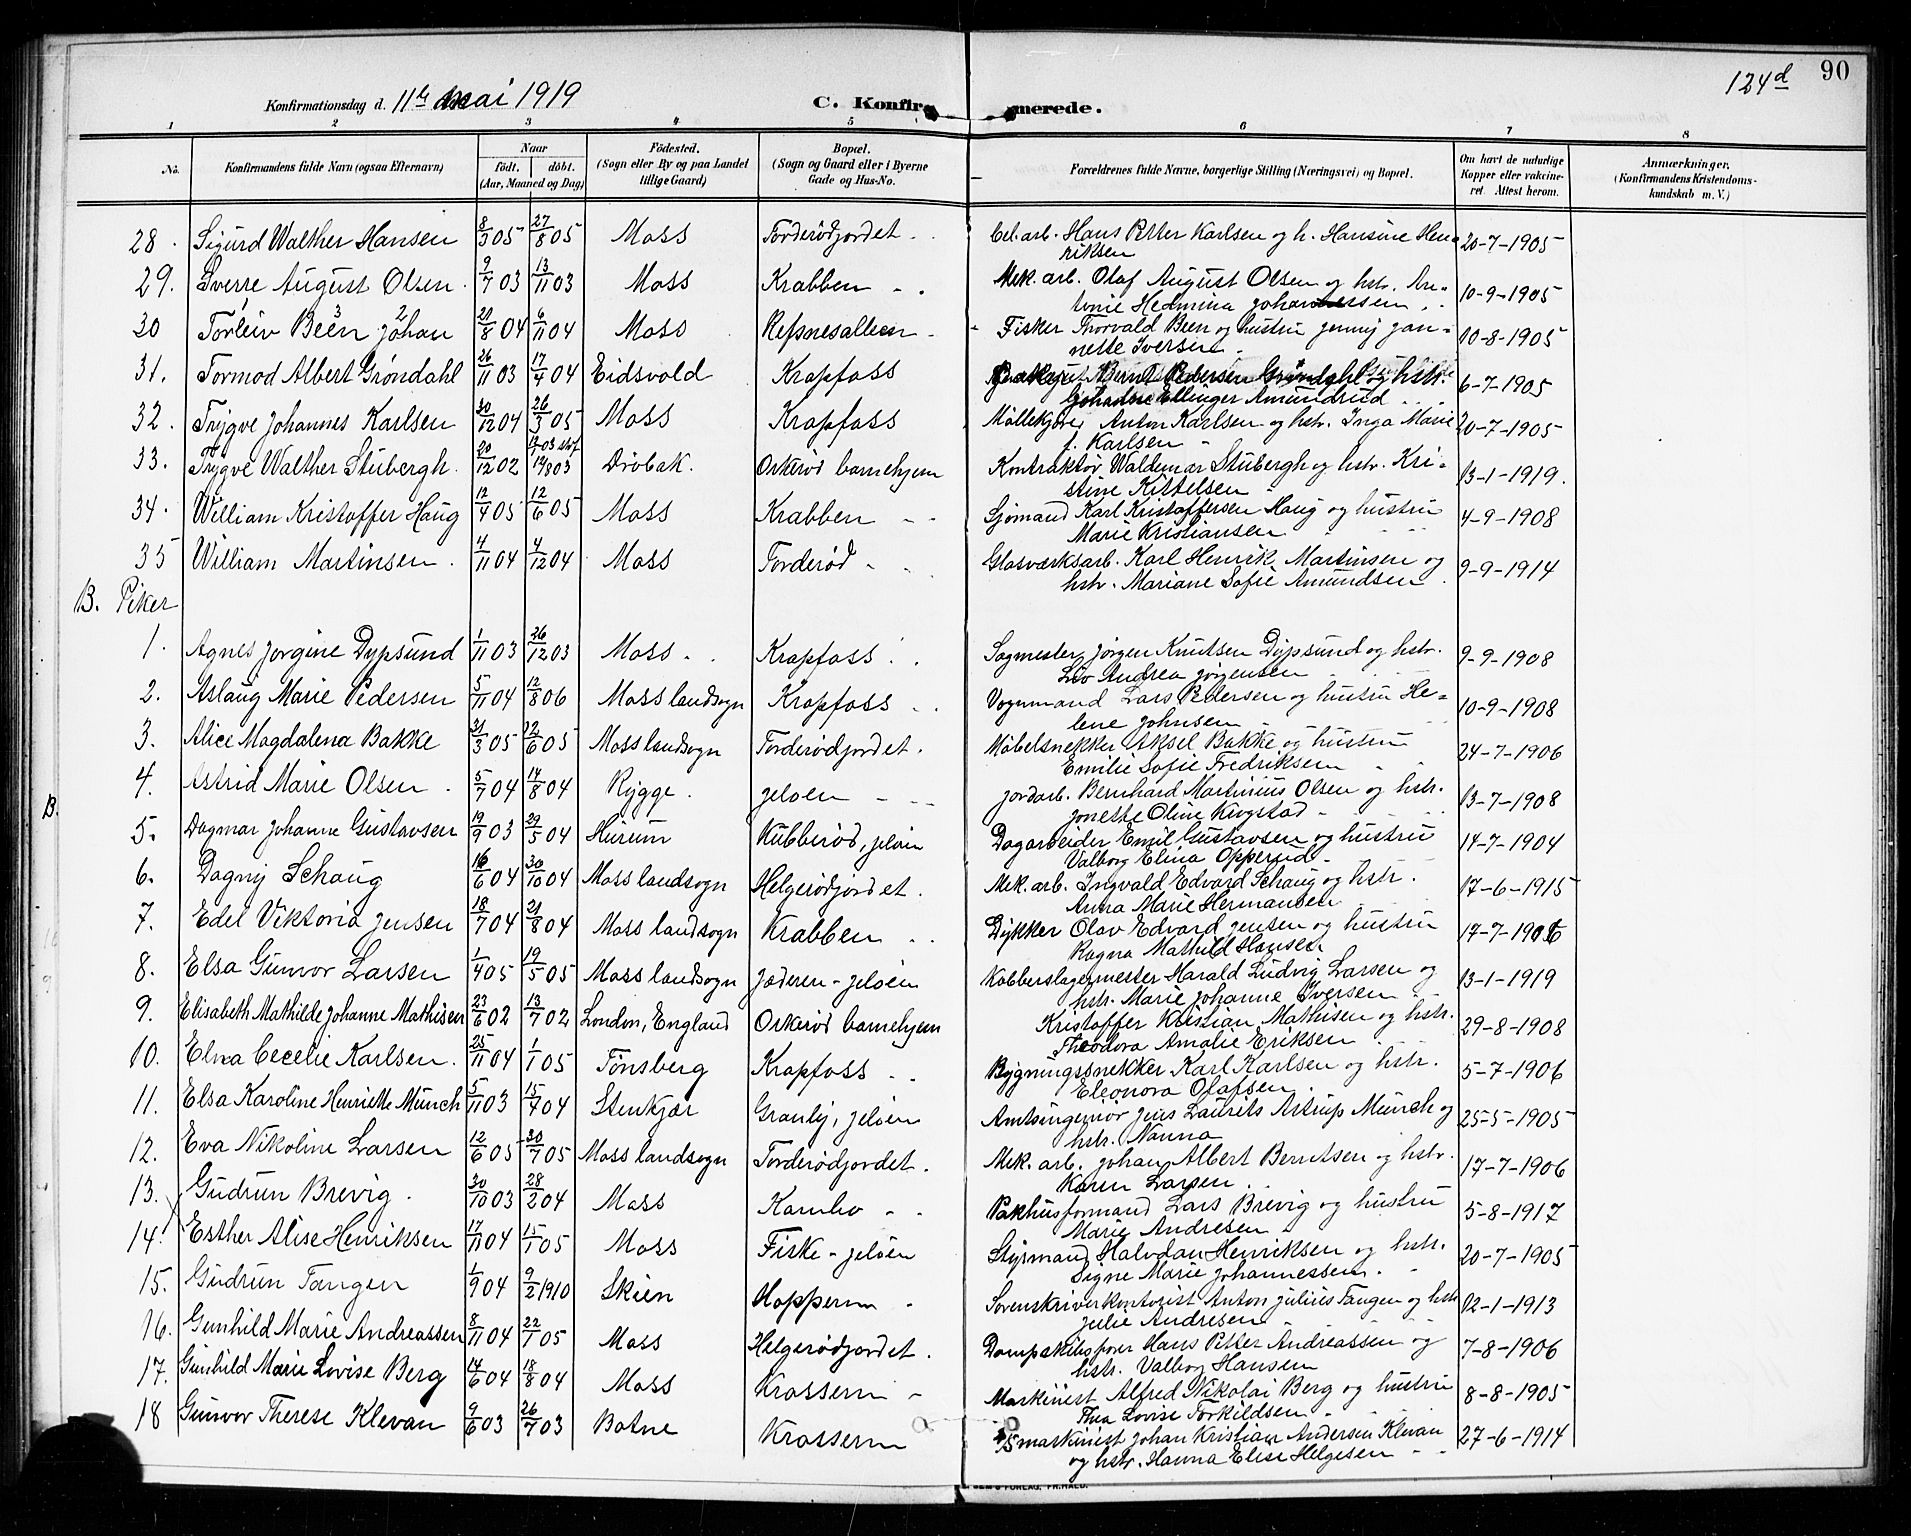 124d 90
Konfirmationsdag d. 11te mai 1919 C. Konfirmerede.
1 2 3 4 5 6 7 8
No. Konfirmandens fulde Navn (ogsaa Efternavn) Naar født. døbt. (Aar, Maaned og Dag) Fødested. (Sogn eller By og paa Landet tillige Gaard) Bopæl. (Sogn og Gaard eller i Byerne Gade og Hus-No. Forældrenes fulde Navne, borgerlige Stilling (Næringsvei) og Bopæl. Om havt de naturlige Kopper eller vakcineret. Attest herom. Anmærkninger. (Konfirmandens Kristendomskundskab m. V.)
28. Sigurd Walther Hansen 8/3 05 27/8 05 Moss Torderødjordet Cel. arb. Hans Petter Karlsen og h. Hansine Hen- 20-7-1905
riksen
29. Sverre August Olsen 9/7 03 13/11 03 Moss Krabben Mek. arb. Olaf August Olsen og hstr. An- 10-9-1905
tonie Hedmina Johannessen
30 Torleiv Beën 3 Johan 2 20/8 04 6/11 04 Moss Refsnesalleen Fisker Thorvald Been og hustru Jenny Jan- 10-8-1905
nette Iversen
31. Tormod Albert Grøndahl 26/11 03 17/4 04 Eidsvold Krapfoss Bernt Pedersen Grøndahl og hstr. 6-7-1905
Johanne Ellinger Amundrud
32. Trygve Johannes Karlsen 30/12 04 26/3 05 Moss Krapfoss Møllekjører Anton Karlsen og hstr. Inga Marie 20-7-1905
f. Karlsen
33. Trygve Walther Stubergh. 20/12 02 19/8 03 Drøbak. Orkerød barnehjem Kontraktør Waldemar Stubergh og hstr. Kri- 13-1-1919.
stine Kittelsen
34. William Kristoffer Haug 12/4 05 12/6 05 Moss Krabben Sjømand Karl Kristoffersen Haug og hustru 4-9-1908
Marie Kristiansen
35 William Martinsen 4/11 04 4/12 04 Moss Torderød Glasværksarb. Karl Henrik Martinsen og 9-9-1914
hstr. Mariane Sofie Amundsen
B. Piker
1. Agnes Jorgine Dypsund 1/11 03 26/12 03 Moss Krapfoss Sagmester Jørgen Knutsen Dypsund og hstr. 9-9-1908
Liv Andrea Jørgensen
2. Aslaug Marie Pedersen 5/11 04 12/8 06 Moss landsogn Krapfoss Vognmand Lars Pedersen og hustru He- 10-9-1908
lene Johnsen
3. Alice Magdalena Bakke 31/3 05 12/6 05 Moss landsogn Torderødjordet. Møbelsnekker Aksel Bakke og hustru 24-7-1906
Emilie Sofie Fredriksen
4. Astrid Marie Olsen 5/7 04 14/8 04 Rygge. Jeløen Jordarb. Bernhard Martinius Olsen og hstr. 13-7-1908
Jonette Oline Krogstad
B.
5. Dagmar Johanne Gustavsen 19/9 03 29/5 04 Hurum Kubberød, Jeløen Dagarbeider Emil Gustavsen og hustru 14-7-1904
Valborg Elina Opperud
6. Dagny Schaug 16/6 04 30/10 04 Moss landsogn Helgerødjordet. Mek. arb. Ingvald Edvard Schaug og hstr. 17-6-1915
Anna Marie Hermansen
7. Edel Viktoria Jensen 18/7 04 21/8 04 Moss landsogn Krabben Dykker Olav Edvard Jensen og hustru 17-7-1906
Ragna Mathild Hansen
8. Elsa Gunvor Larsen 1/4 05 19/5 05 Moss landsogn Jaderen-Jeløen Kobberslagermester Harald Ludvig Larsen og 13-1-1919
hstr. Marie Johanne Iversen
9. Elisabeth Mathilde Johanne Mathisen 23/6 02 13/7 02 London, England Orkerød barnehjem Kristoffer Kristian Mathisen og hstr. 29-8-1908
Theodora Amalie Eriksen
10. Elna Cecelie Karlsen. 25/11 04 1/1 05 Tønsberg Krapfoss Bygningssnekker Karl Karlsen og hstr. 5-7-1906
Eleonora Olafsen
11. Elsa Karoline Henriette Münch 5/11 03 15/4 04 Stenkjær Granly, Jeløen Amtsingeniør Jens Laurits Astrup Münch og 25-5-1905
hstr. Nanna
12. Eva Nikoline Larsen 12/6 05 30/7 05 Moss landsogn Torderødjordet. Mek. arb. Johan Albert Berntsen og hstr. 17-7-1906
Karen Larsen
13. Gudrun Brevig. 30/10 03 28/2 04 Moss Kambo Pakhusformand Lars Brevig og hustru 5-8-1917
Marie Andresen
14. Esther Alise Henriksen 17/11 04 15/1 05 Moss Fiske-Jeløen Styrmand Halvdan Henriksen og hstr. 20-7-1905
Signe Marie Johannessen.
15. Gudrun Tangen 1/9 04 9/2 1910 Skien Hoppern Sorenskriverkontorist Anton Julius Tangen og hstr 12-1-1913
Julie Andresen
16. Gunhild Marie Andreassen 8/11 04 22/1 05 Moss Helgerødjordet. Dampskibsfører Hans Petter Andreassen og 7-8-1906
hstr. Valborg Hansen
17. Gunhild Marie Lovise Berg 14/6 04 18/8 04 Moss Krossern Maskinist Alfred Nikolai Berg og hustru 8-8-1905
Thea Lovise Torkildsen
18 Gunvor Therese Klevan 9/6 03 26/7 03 Botne Krossern maskinist Johan Kristian Andersen Klevan 27-6-1914
og hstr. Hanna Elise Helgesen
SEM'S FORLAG, FR.HALD.